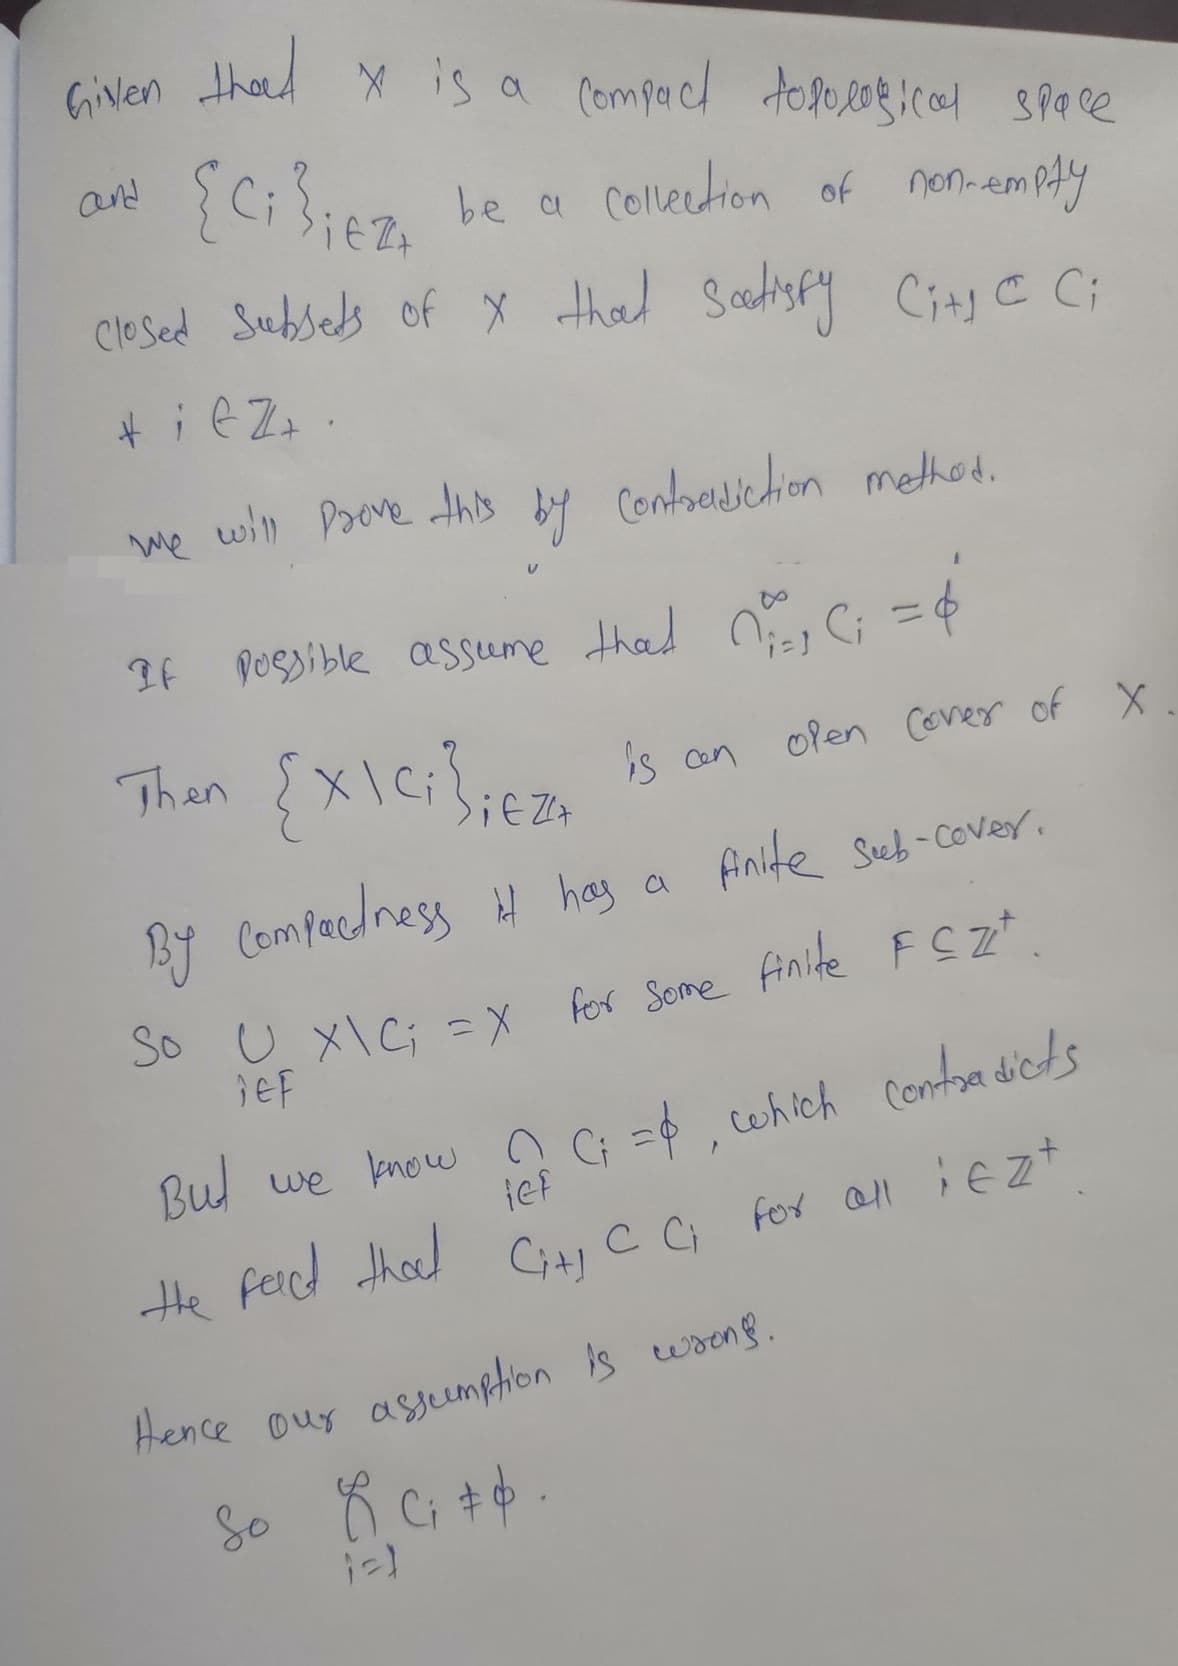 Given that X is a compact topological space
and {Ci}i∈Z+ be a collection of non-empty
closed subsets of X that satisfy Ci+1 ⊂ Ci
∀ i ∈ Z+.
we will prove this by contradiction method.
If possible assume that ∩∞i=1 Ci = ϕ
Then {X\Ci}i∈Z+ is an open cover of X.
By compactness it has a finite sub-cover.
So ∪ X\Ci = X for some finite F ⊆ Z+.
i∈F
But we know ∩ Ci = ϕ, which contradicts
i∈F
the fact that Ci+1 ⊂ Ci for all i ∈ Z+.
Hence our assumption is wrong.
So ∞∩ Ci ≠ ϕ.
i=1